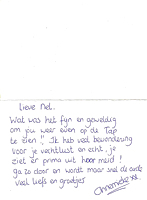 Lieve Nel.
Wat was het fijn en geweldig
om jou weer even op de Tap
te zien!! Ik heb veel bewondering
voor je vechtlust en echt, je
ziet er prima uit hoor meid!
ga zo door en wordt maar snel de oude
veel liefs en groetjes